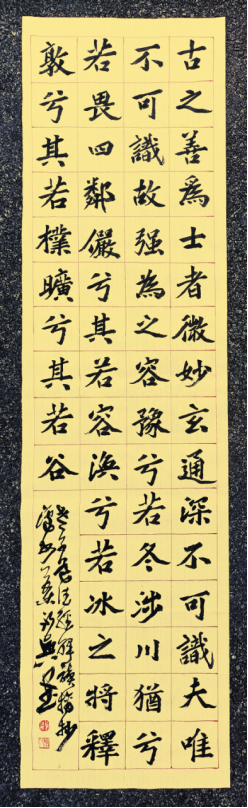 古之善爲士者微妙玄通深不可識夫唯
不可識故强為之容豫兮若冬涉川猶兮
若畏四鄰儼兮其若容渙兮若冰之將釋
敦兮其若樸曠兮其若谷
老子道德經解讀摘抄